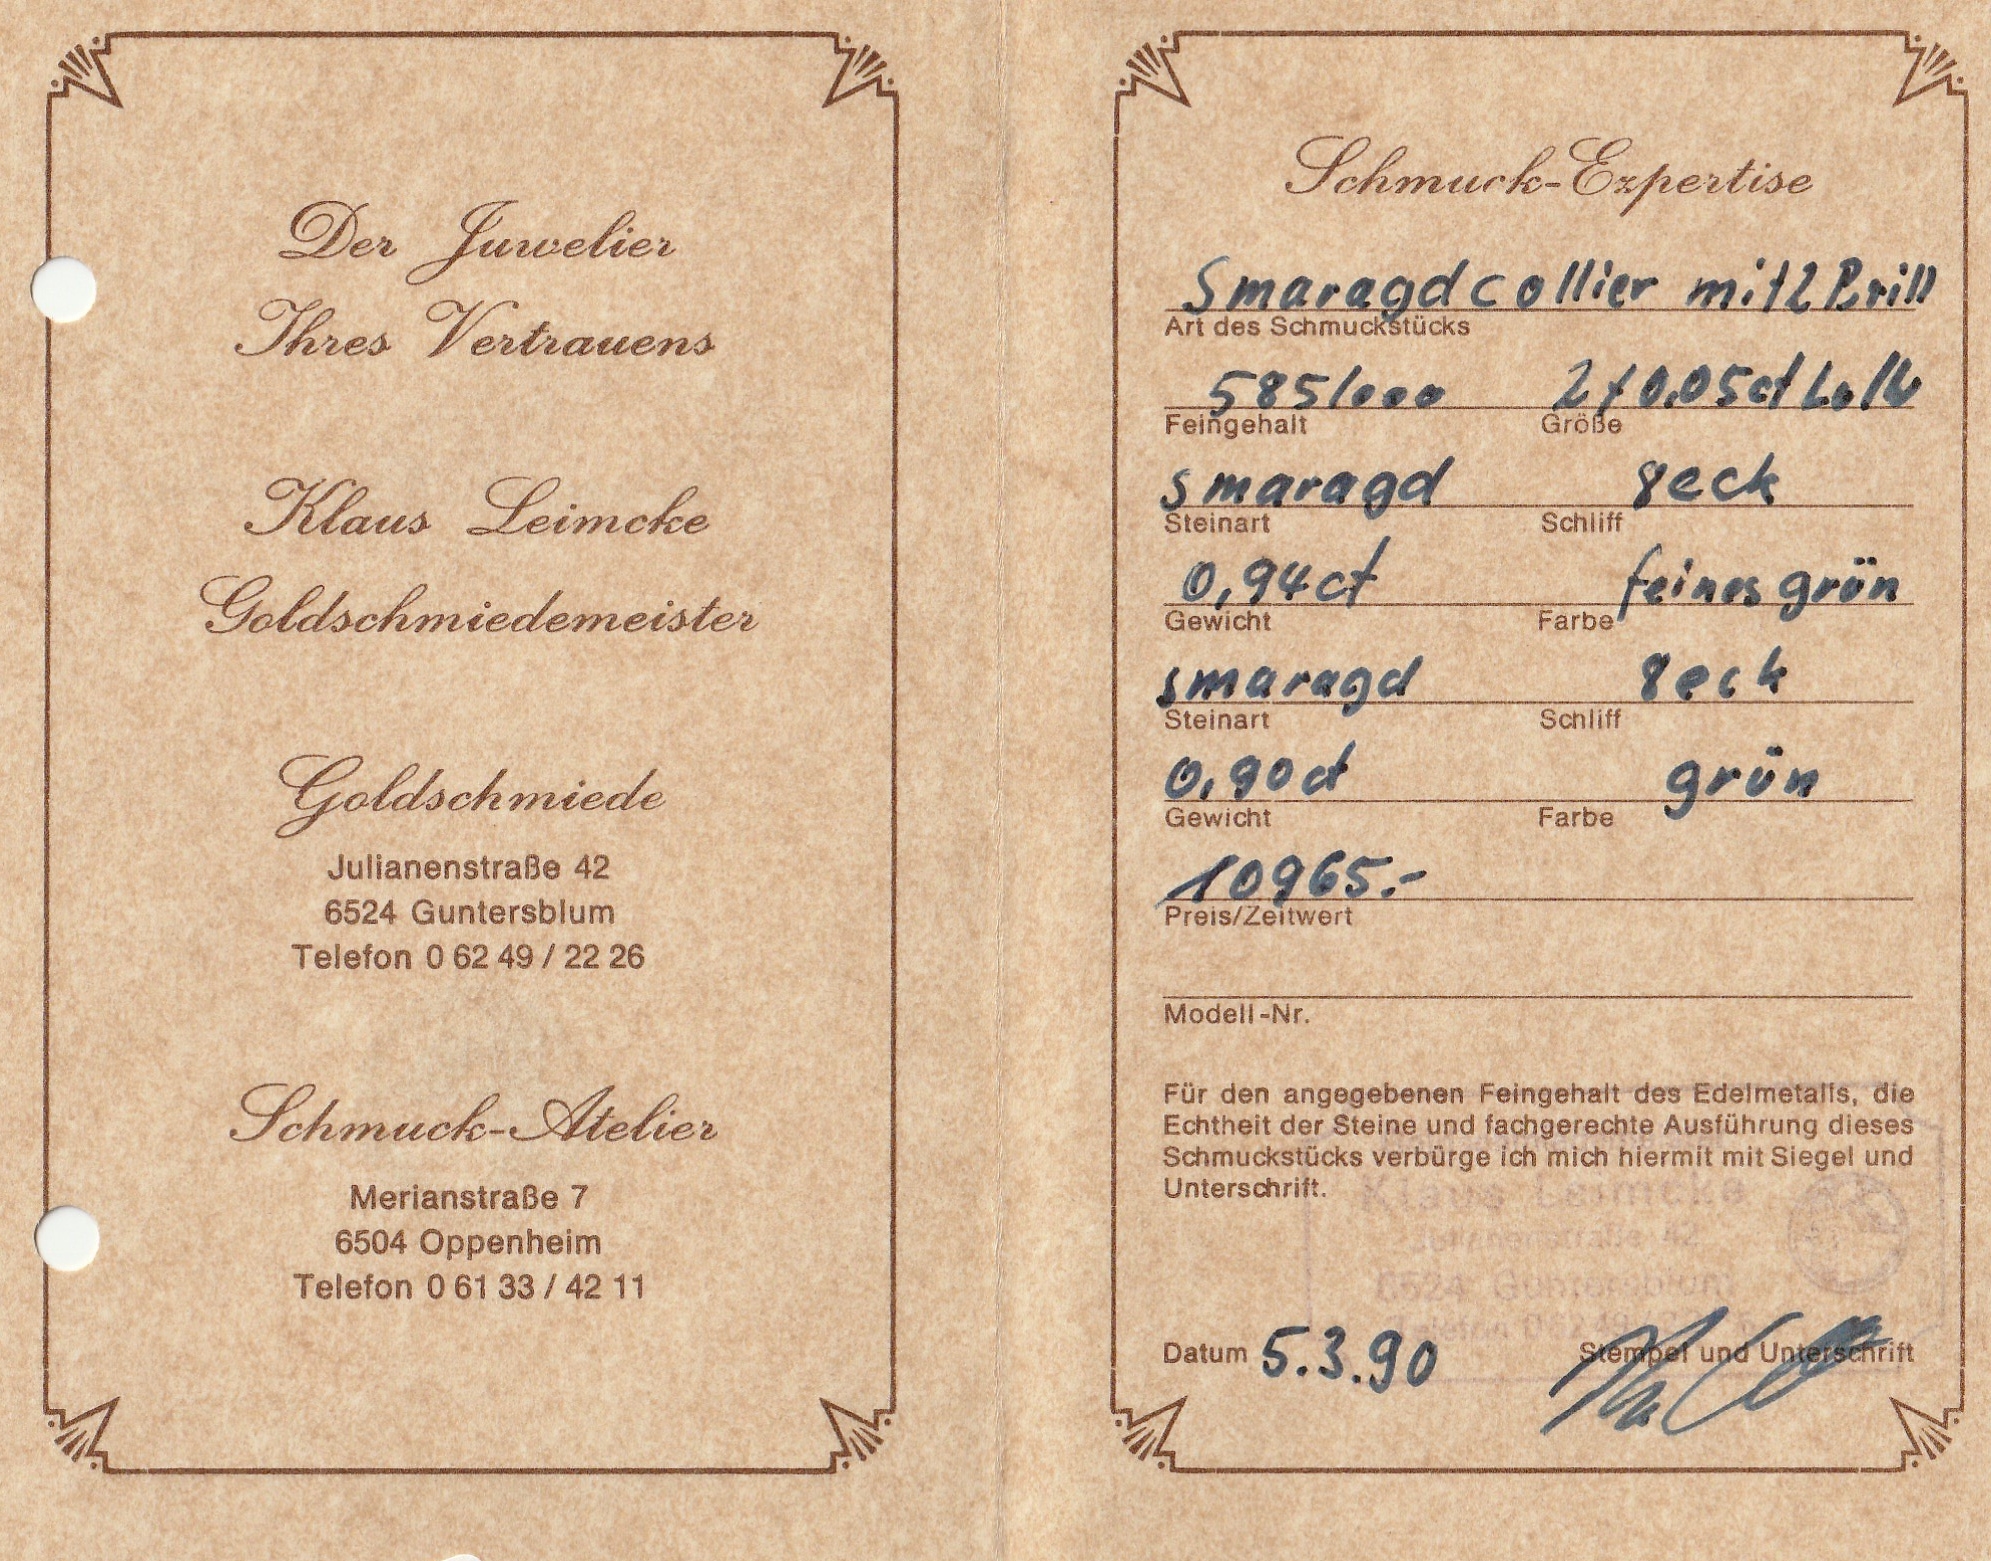 Der Juwelier
Ihres Vertrauens
Klaus Leimcke
Goldschmiedemeister
Goldschmiede
Julianenstraße 42
6524 Guntersblum
Telefon 0 62 49 / 22 26
Schmuck-Atelier
Merianstraße 7
6504 Oppenheim
Telefon 0 61 33 / 42 11
Schmuck-Expertise
Smaragdcollier mit 2 Brill
Art des Schmuckstücks
585/000 2x0.05ct
Feingehalt Größe
smaragd 8eck
Steinart Schliff
0,94ct feines grün
Gewicht Farbe
smaragd 8eck
Steinart Schliff
0,90ct grün
Gewicht Farbe
10965.-
Preis/Zeitwert
Modell-Nr.
Für den angegebenen Feingehalt des Edelmetalls, die
Echtheit der Steine und fachgerechte Ausführung dieses
Schmuckstücks verbürge ich mich hiermit mit Siegel und
Unterschrift.
Klaus Leimcke
Julianenstraße 42
6524 Guntersblum
Telefon
Datum 5.3.90 Stempel und Unterschrift